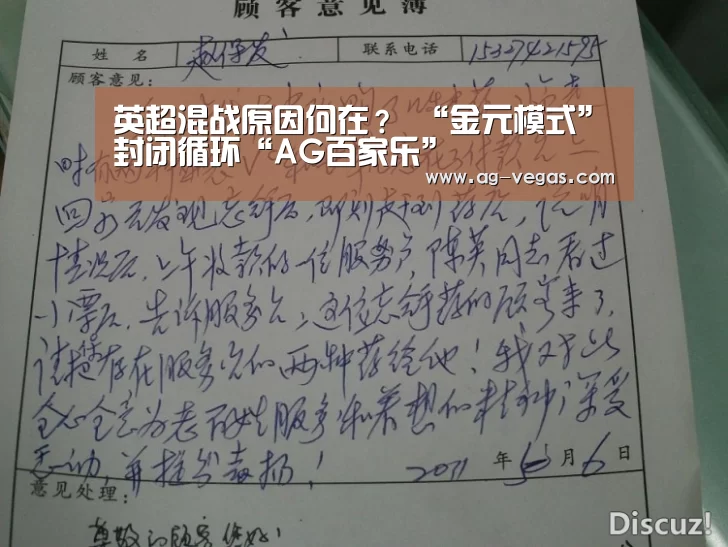 顾客意见簿
姓 名 赵保发 联系电话 15327421595
顾客意见：
英超混战原因何在？ “金元模式”
封闭循环“AG百家乐”
www.ag-vegas.com
回家后发现忘拿后，即刻赶到药店，说明
情况后，上午收款的一位服务员，陈英同志看过
小票后，告诉服务员，这位忘拿药的顾客来了，
请把存在服务台的两种药给他！我对此
全心全意为老百姓服务和着想的精神，深受
感动，并提出表扬！
2011 年 月 6 日
意见处理：
尊敬的顾客您好！
Discuz!